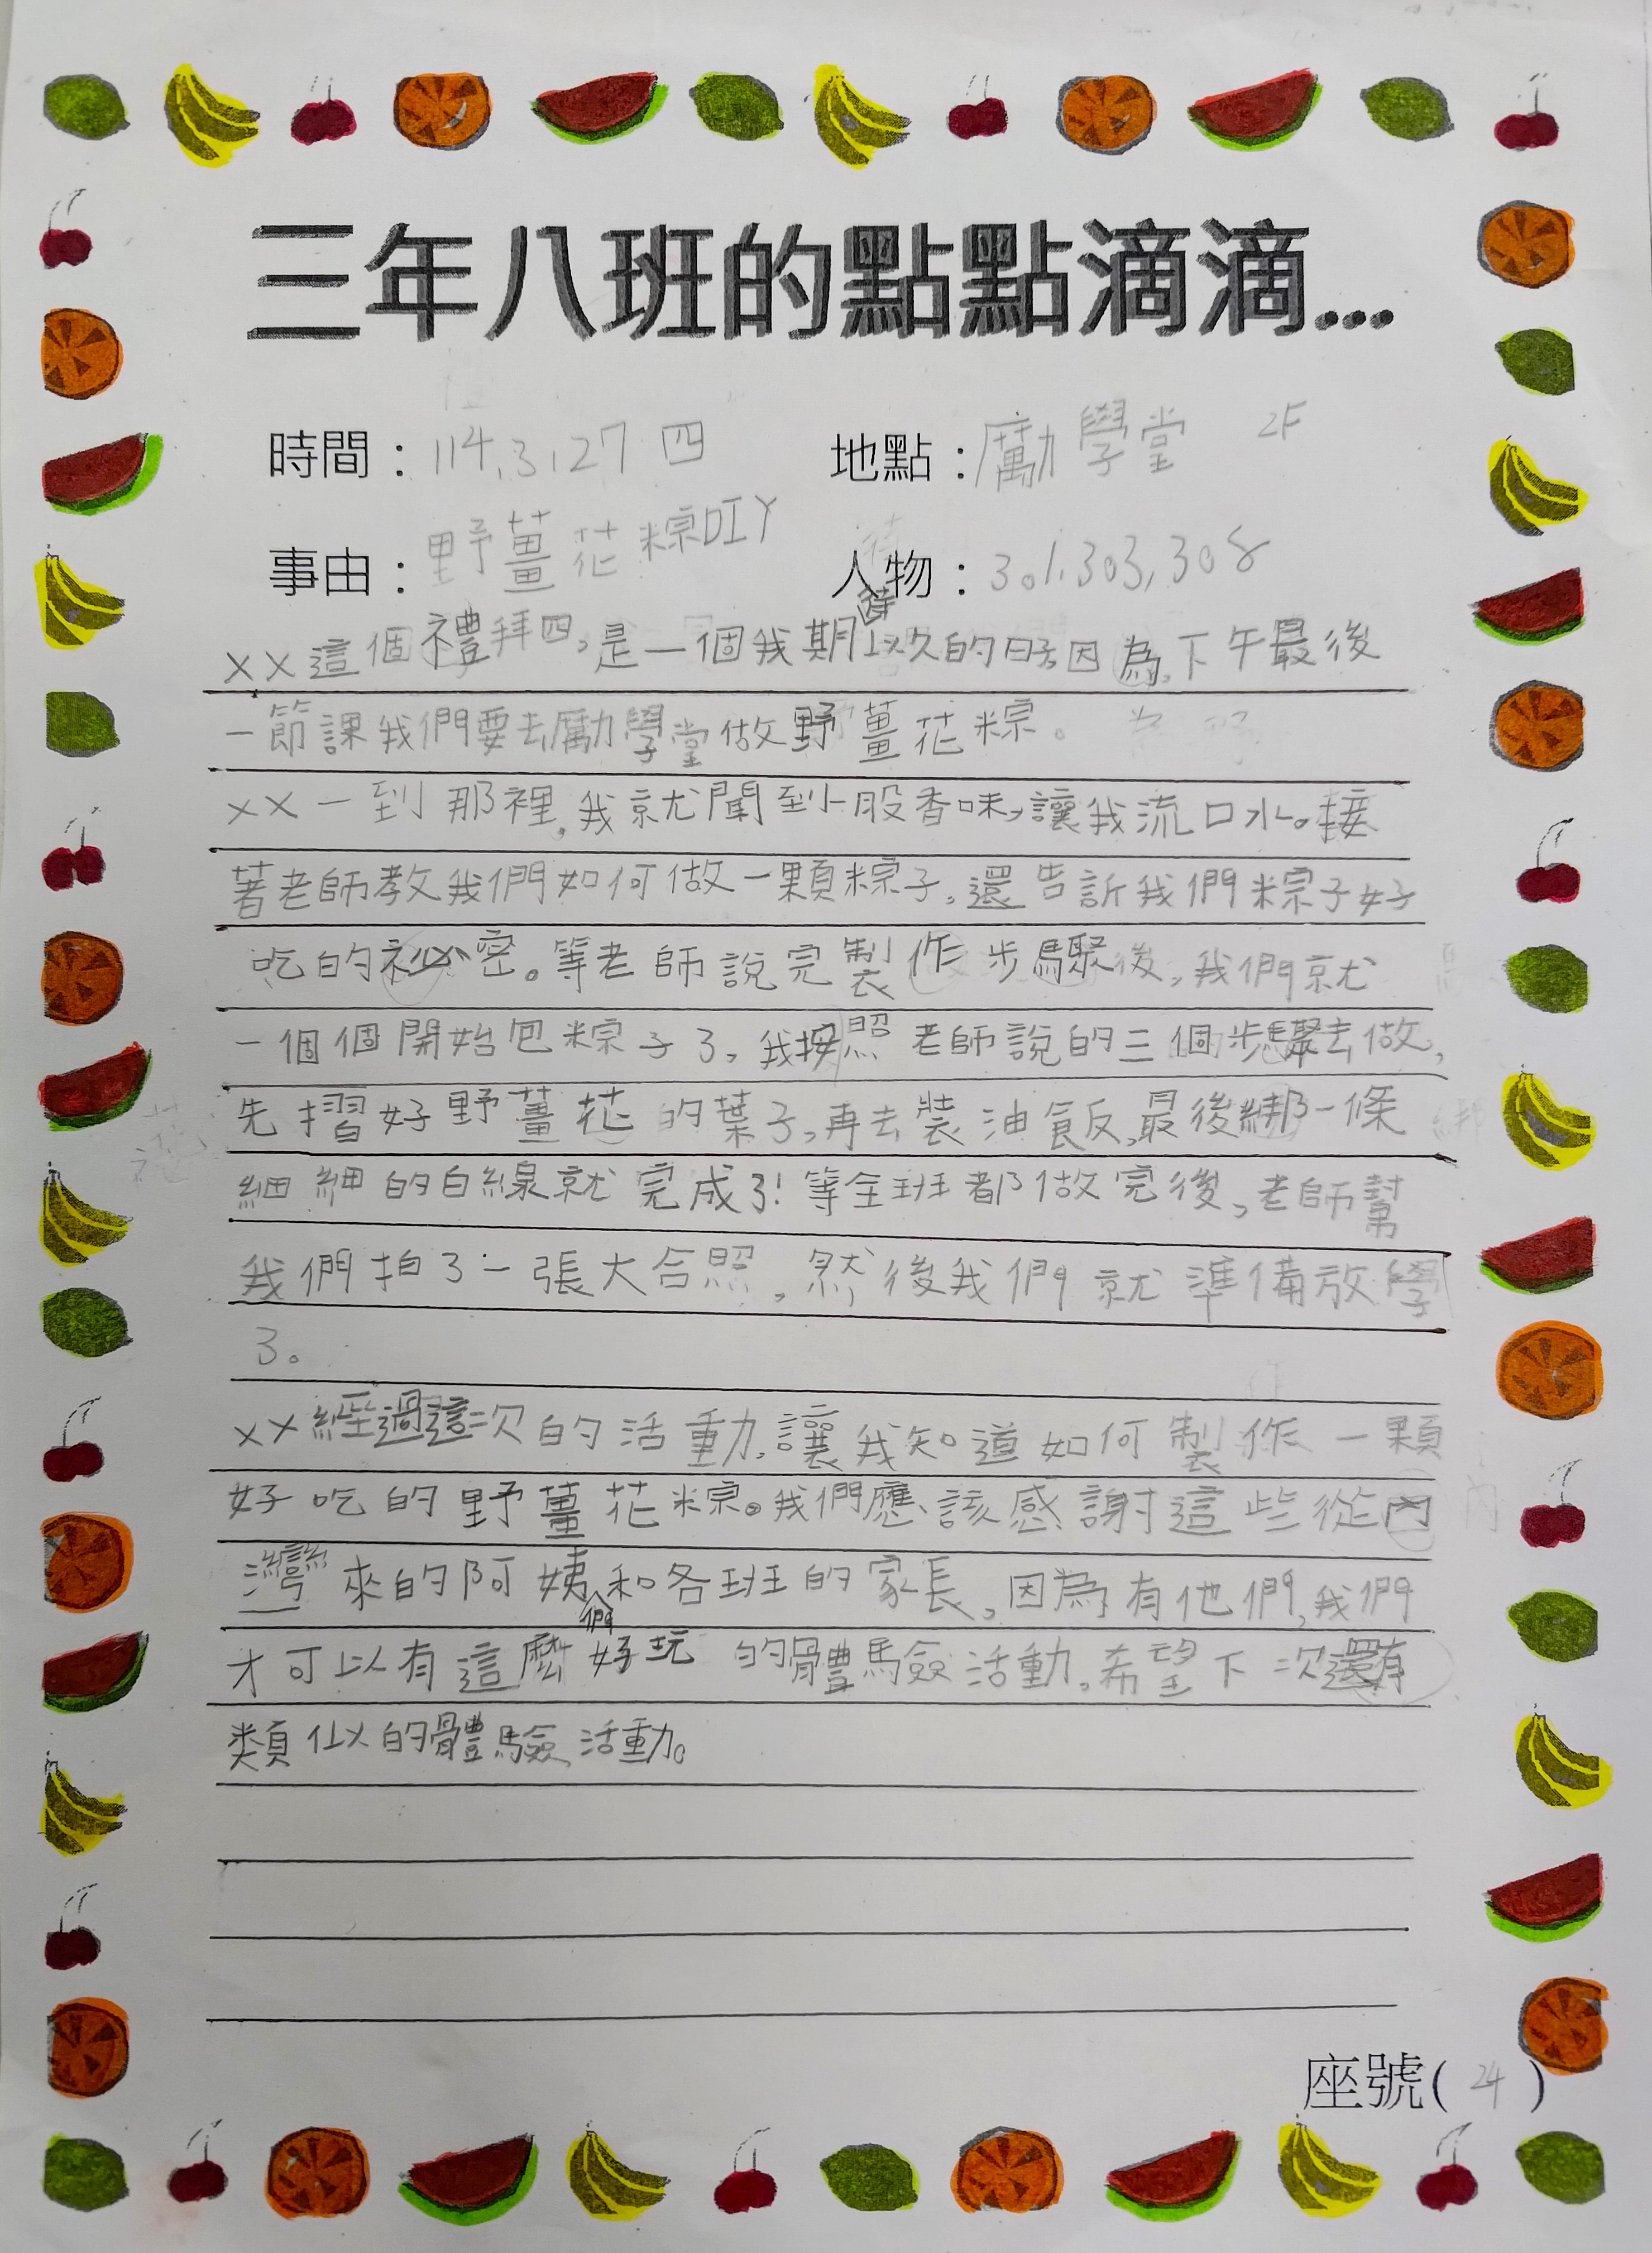 三年八班的點點滴滴...
時間：114.3.27 四 地點：勵學堂 2F
事由：野薑花粽DIY 人物：301.303.308
××這個禮拜四，是一個我期待以久的日子，因為，下午最後
一節課我們要去勵學堂做野薑花粽。
××一到那裡，我就聞到一股香味，讓我流口水。接
著老師教我們如何做一顆粽子，還告訴我們粽子好
吃的祕密。等老師說完製作步驟後，我們就
一個個開始包粽子了，我按照老師說的三個步驟去做，
先摺好野薑花的葉子，再去裝油飯，最後綁一條
細細的白線就完成了！等全班都做完後，老師幫
我們拍了一張大合照，然後我們就準備放學
了。
××經過這次的活動，讓我知道如何製作一顆
好吃的野薑花粽。我們應該感謝這些從內
灣來的阿姨們和各班的家長，因為有他們，我們
才可以有這麼好玩的體驗活動，希望下次還有
類似的體驗活動。
座號(24)